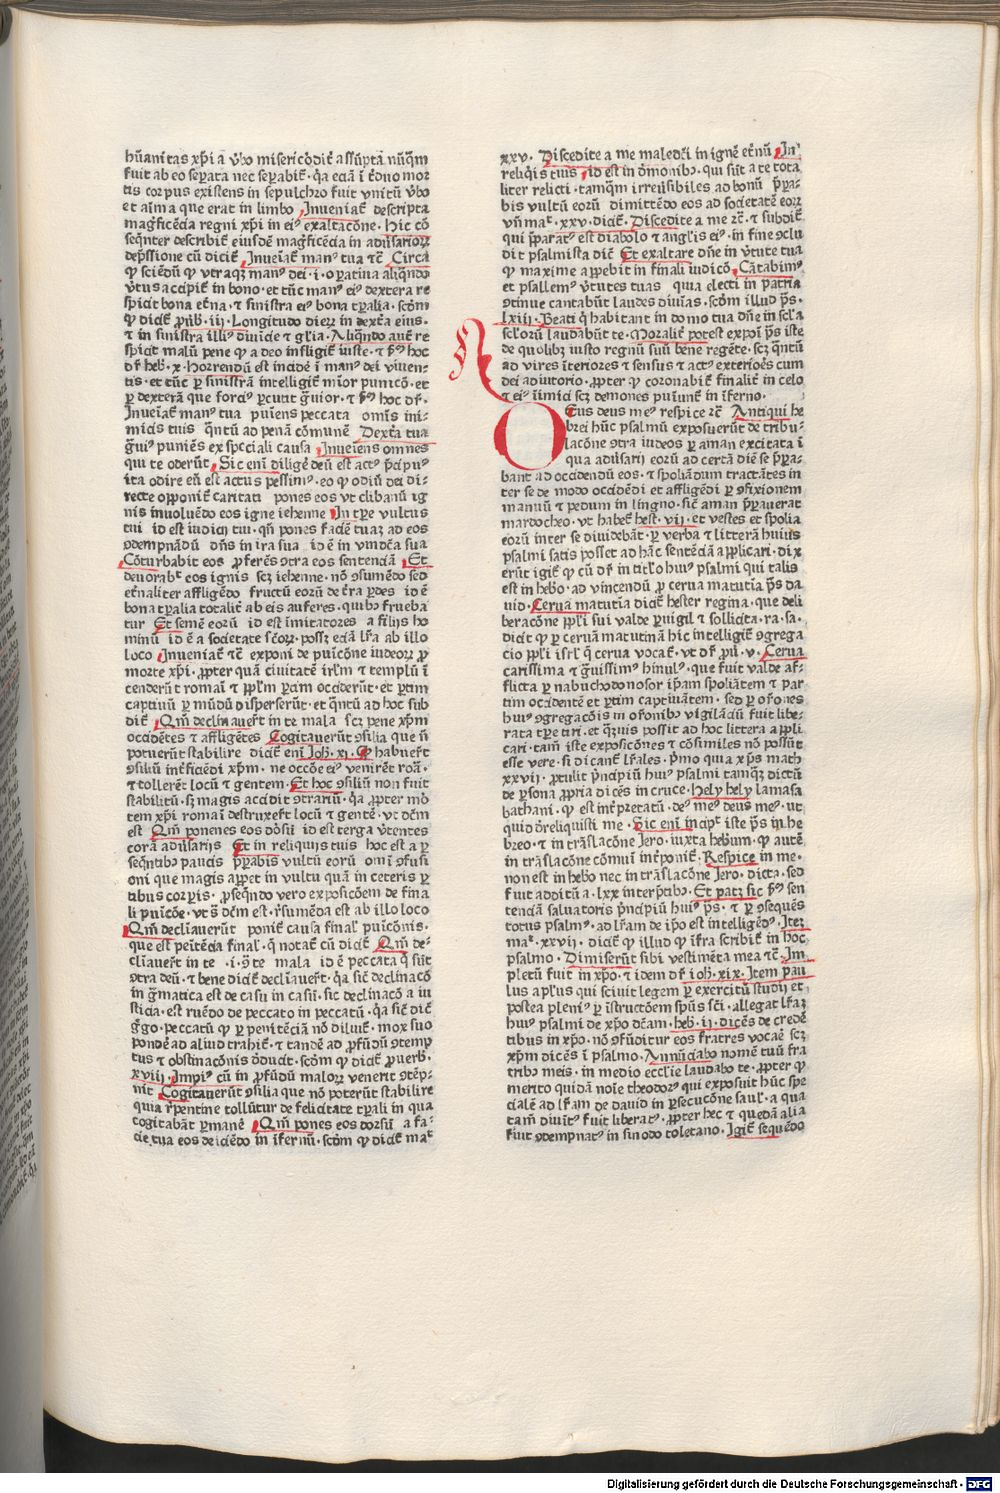 hūanitas xp̄i a v̄bo misericōdit̄ assūptā nūq̄m
fuit ab eo sep̱ata nec sep̱abit̄ · q̄a eciā ī t̄duo mor
tis corpus existens in sepulchro fuit vnitū v̄bo
et aīma que erat in limbo Inueniat̄ descripta
mag̓ficēcia regni xp̄i in eiꝰ exaltacōne · Hic cō
seq̄nter describit̄ eiusdē mag̓ficēcia in adūsarioꝝ
dep̄ssione cū dicit̄ Inueiat̄ manꝰ tua ⁊c̄ Circa
ꝙ sciēdū ꝙ vtraqꝫ manꝰ dei · i · opatina aliqn̄do
v̓tus accipit̄ in bono · et tūc manꝰ eiꝰ dextera re
spicit bona et̓na · ⁊ sinistra eiꝰ bona tp̱alia · scd̓m
ꝙ dicit̄ ꝓūb̓ · iij · Longitudo dierꝝ in dext̓a eius ·
⁊ in sinistra illiꝰ diuicie ⁊ gl̓ia · Aliqn̄do aut̄ re
spicit malū pene ꝙ a deo infligit̄ iuste · ⁊ f̄m hoc
dr̄ heb̓ · x · Horrendū est incide ī manꝰ dei viuen-
tis · et tūc ꝑ sinistrā intelligit̄ mīor punicō · et
ꝑ dexterā que forciꝰ ꝑcutit g̓uior · ⁊ f̄m hoc dr̄ ·
Inueiat̄ manꝰ tua puīens peccata omīs ini-
micis tuis qn̄tū ad penā cōmunē Dext̓a tua
g̓uiꝰ puniēs ex spc̄ciali causa Inueīens omnes
qui te oderūt Sic enī diligē deū est actꝰ p̄cipuꝰ
ita odire eū est actus pessimꝰ · eo ꝙ odiū dei di-
recte opponit̄ caritati pones eos vt clibanū ig
nis inuoluēdo eos igne iehenne In tp̱e vultus
tui id est iudicij tui · qn̄ pones faciē tuaꝫ ad eos
ꝯdempnādū dn̄s in ira sua id ē in vindc̄a sua
Cōturbabit eos ꝓferēs ꝯtra eos sentenciā Et
deuorabᵗ eos ignis scꝫ iehenne · nō ꝯsumēdo sed
et̓naliter affligēdo fructū eorū de t̓ra ꝑdes id ē
bona tp̱alia totalit̓ ab eis auferes · quibꝰ frueba
tur Et semē eorū id est imitatores a filijs ho
minū id ē a societate sc̄orꝝ · possꝫ eciā lr̄a ab illo
loco Inueniat̄ ⁊c̄ exponi de puīcōne iudeorꝝ ꝓ
morte xp̄i · ꝓpter quā ciuitatē irl̄m ⁊ templū ī
cenderūt romaī ⁊ pp̄lm ꝑtim occiderūt · et ꝑtim
captiuū ꝑ mūdū disperserūt · et qn̄tū ad hoc sub
dit̄ Qm̄ declinauer̄t in te mala scꝫ pene xp̄m
occidētes ⁊ affligētes Cogitauerūt ꝯsilia que n̄
potuerūt stabilire dicit̄ enī Joh̄ · xi · ꝙ habuer̄t
ꝯsiliū int̓ficiēdi xp̄m · ne occōe eiꝰ venirēt roāi ·
⁊ tollerēt locū ⁊ gentem · Et hoc ꝯsiliū non fuit
stabilitū · sꝫ magis accidit ꝯtrariū · q̄a ꝓpter mō
tem xp̄i romaī destruxer̄t locū ⁊ gentē · vt dc̄m
est Qm̄ ponenes eos dōsū id est terga vtentes
corā adūsarijs Et in reliquijs tuis hoc est a p̱
seqn̄tibꝰ paucis p̱arabis vultū eorū omī ꝯfusi
oni que magis appet in vultu quā in ceteris p̱
tibus corꝑis · ꝓseqn̄do vero exposicōem de fina
li puīcōe · vt s̄ dc̄m est · r̄sumēda est ab illo loco
Qm̄ declīauerūt ponit̄ causa final̓ puīcōnis ·
que est peītēcia final̓ · q̄ notat̄ cū dicit̄ Qm̄ de-
clīauer̄t in te · i · ꝯ te mala id ē peccata q̄ sūt
ꝯtra deū · ⁊ bene dicit̄ declīauer̄t · q̄a sic̄ declinacō
in g̓matica est de casu in casū · sic declinacō a iu
sticia · est ruēdo de peccato in peccatū · q̄a sic̄ dicit̄
g̓go · peccatū ꝙ ꝑ penitēciā nō diluit̄ · mox suo
pondē ad aliud trahit̄ · ⁊ tandē ad ꝓfūdū ꝯtemp
tus ⁊ obstinacōnis ꝺducit · scd̓m ꝙ dicit̄ ꝓuerb̓ ·
xviij · Impiꝰ cū in ꝓfūdū malorꝝ venerit ꝯtēp-
nit Cogitauerūt ꝯsilia que nō poterūt stabilire
quia rp̄entine tollūtur de felicitate tp̱ali in qua
cogitabāt p̱manē Qm̄ pones eos dorsū a fa-
cie tua eos deiciēdo in īfernū · scd̓m ꝙ dicit̄ matᵗ
xxv · Discedite a me maledc̄i in ignē et̓nū In
reliq̓is tuis Id est in ōmonibꝰ · qui sūt a te tota
liter relicti · tamq̄m irreīsibiles ad bonū p̄pa-
bis vultū eorū dimittēdo eos ad societatē eorꝝ
vn̄ matᵗ · xxv · dicit̄ · Discedite a me ⁊c̄ · ⁊ subdit̄
qui p̄paratꝰ est diabolo ⁊ angl̓is eiꝰ · in fine ꝯclu
dit psalmista dic̄ Et exaltare dn̄e in v̓tute tua
ꝙ maxime appebit in finali iudicō Cātabimꝰ
et psallemꝰ v̓tutes tuas quia electi in patria
ꝯtinue cantabūt laudes diuīas · scd̓m illud p̄s ·
lxiij · Beati q̄ habitant in domo tua dn̄e in scl̄a
scl̄orū laudabūt te · Moralit̓ potest expoī p̄s iste
de quolibꝫ iusto regnū suū bene regēte · scꝫ qn̄tū
ad vires īteriores ⁊ sensus ⁊ actꝰ exteriōes cum
dei adiutorio · ꝓpter ꝙ coronabit̄ finalit̓ in celo
⁊ eiꝰ īimici scꝫ demones puīunt̄ in īferno ·
Deus deus meꝰ respice ⁊c̄ Antiqui he
brei hūc psalmū exposuerūt de tribu-
lacōne ꝯtra iudeos ꝑ aman excitata ī
qua adūsarij eorū ad certā diē se p̄pa-
bant ad occidēdū eos · ⁊ spoliādum tractātes in
ter se de modo occidēdi et affligēdi ꝑ ꝯfixionem
manuū ⁊ pedum in lingno · sic̄ aman p̄parauerat
mardocheo · vt habet̄ hest · vij · et vestes et spolia
eorū inter se diuidebāt · p̱ verba ⁊ litterā huiꝰ
psalmi satis posset ad hāc sentēciā applicari · dix
erūt igit̄ ꝙ cū dr̄ in titl̓o huiꝰ psalmi qui talis
est in heb̓o · ad vincendū ꝓ cerua matutīa p̄s da
uid · Cerua matutīa dicit̄ hester regina · que deli
beracōne pp̄li sui valde puigil ⁊ sollicita · ra · sa ·
dicit ꝙ ꝑ ceruā matutinā hic intelligit̄ ꝯgrega
cio pp̄li isrl̄ q̄ cerua vocat̄ · vt dr̄ ꝓū · v · Cerua
carissima ⁊ g̓uissimꝰ hinulꝰ · que fuit valde af-
flicta ꝑ nabuchodonosor ip̄am spoliātem ⁊ par
tim occidentē et ꝑtim captiuātem · sed ꝑ or̄ones
huiꝰ ꝯgregacōis in or̄onibꝰ vigilāciū fuit libe-
rata tp̱e tiri · et qꝫuis possit ad hoc littera appli
cari · tam̄ iste exposicōnes ⁊ cōsimiles nō possūt
esse vere · si dicant̄ lr̄ales · p̄mo quia xp̄s math
xxvij · ꝓtulit p̄ncipiū huiꝰ psalmi tamqꝫ dictū
de p̱sona ꝓpria dicēs in cruce · Hely hely lamasa
bathani · ꝙ est int̓pretatū · deꝰ meꝰ deus meꝰ · ut
quid dr̄eliquisti me · Sic enī incipᵗ iste p̄s in he
breo · ⁊ in trāslacōne Jero · iuxta heb̓um · ꝙ autē
in trāslacōne cōmuī int̓ponit̄ · Respice in me ·
non est in heb̓o nec in trāslacōne Jero · dicta · sed
fuit additū a · lxx interp̄tibꝰ · Et patꝫ sic f̄m sen
tenciā saluatoris p̄ncipiū huiꝰ p̄s · ⁊ p̱ ꝯsequēs
totus psalmꝰ · ad lr̄am de xp̄o est intelligēdꝰ · Itez
matᵗ · xxvij · dicit̄ ꝙ illud ꝙ īfra scribit̄ in hoc
psalmo · Dimiserūt sibi vestimēta mea ⁊c̄ · Im
pletū fuit in xp̄o · ⁊ idem dr̄ ioh̄ · xix · Item pau
lus aplꝰus qui sciuit legem ꝑ exercitū studij et
postea pleniꝰ ꝑ īstructōem spūs sc̄i · allegat lr̄aꝫ
huiꝰ psalmi de xp̄o dc̄am · heb̓ · ij · dicēs de credē
tibus in xp̄o · nō ꝯfūditur eos fratres vocaē scꝫ
xp̄m dicēs ī psalmo · Annūciabo nomē tuū fra
tribꝰ meis · in medio eccl̄ie laudabo te · ꝓpter ꝙ
merito quidā noīe theodorꝰ qui exposuit hūc spe
cialē ad lr̄am de dauid in p̱secucōne saul̓ · a qua
tam̄ diuitꝰ fuit liberatꝰ · ꝓpter hec ⁊ quedā alia
fuit ꝯdempnatꝰ in sinodo toletano · Igit̄ sequēdo
Digitalisierung gefördert durch die Deutsche Forschungsgemeinschaft - DFG